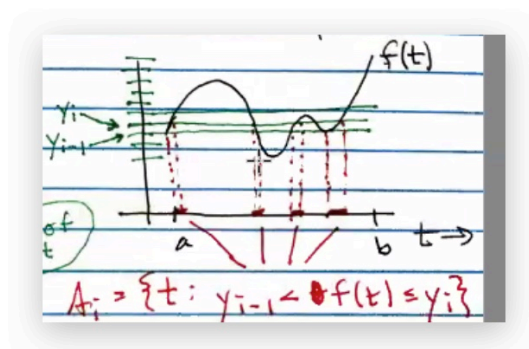 f(t)
yᵢ
yᵢ₋₁
of
t
a
b
t →
Aᵢ = {t : yᵢ₋₁ < f(t) ≤ yᵢ}